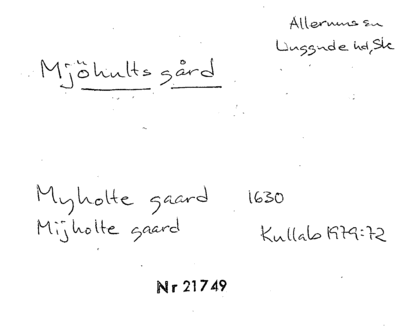 Allerums sn
Luggude hd, Sk
Mjöhults gård
Myholte gaard 1630
Mijholte gaard Kullab 1979:72
Nr 21749